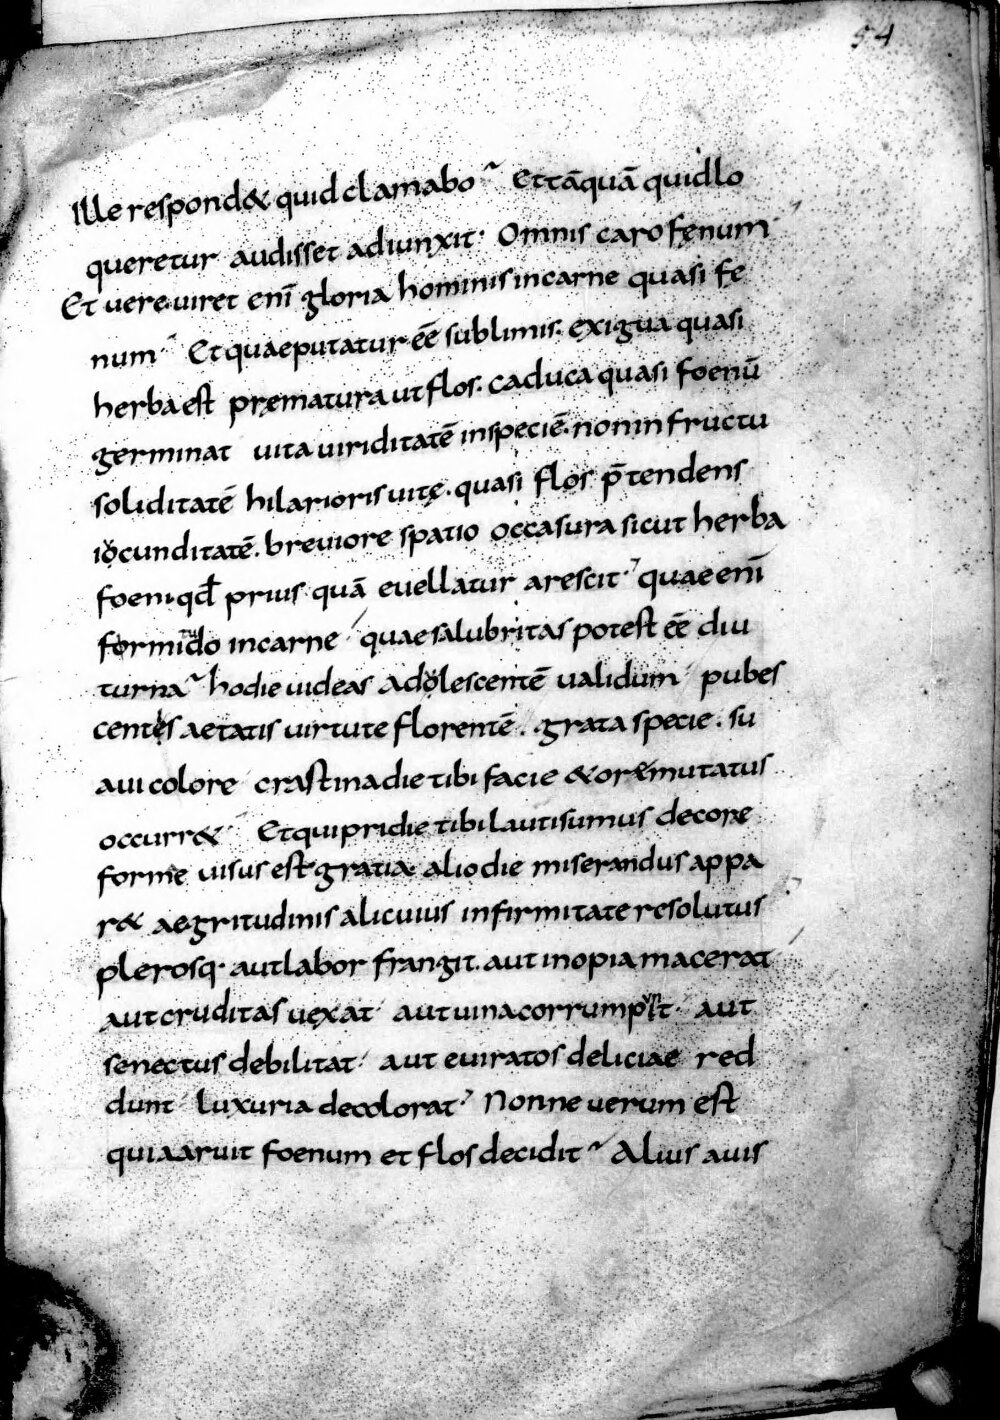 54
Ille respond& quid clamabo Et tāquā quid lo
queretur audisset adiunxit · Omnis caro fęnum
Et vere viret enī gloria hominis in carne quasi fe
num Et quae putatur eē sublimis · exigua quasi
herba est prematura ut flos · caduca quasi foenū
germinat vita uiriditatē in speciē · non in fructu
soliditatē hilarioris uitę · quasi flos p̄tendens
iocunditatē · breuiore spatio occasura sicut herba
foeni · qđ prius quā euellatur arescit quae enī
formitudo in carne quae salubritas potest eē diu
turna hodie uideas adolescentē validum pubes
centis aetatis virtute florentē · grata specie · su
aui colore crastina die tibi facie & ore mutatus
occurr& Et qui pridie tibi lautisumus decore
forme uisus est gratia alio die miserandus appa
r& aegritudinis alicuius infirmitate resolutus
plerosq· aut labor frangit · aut inopia macerat
aut cruditas vexat aut uina corrumpunt aut
senectus debilitat aut euiratos deliciae red
dunt luxuria decolorat Nonne uerum est
quia aruit foenum et flos decidit Alius auis